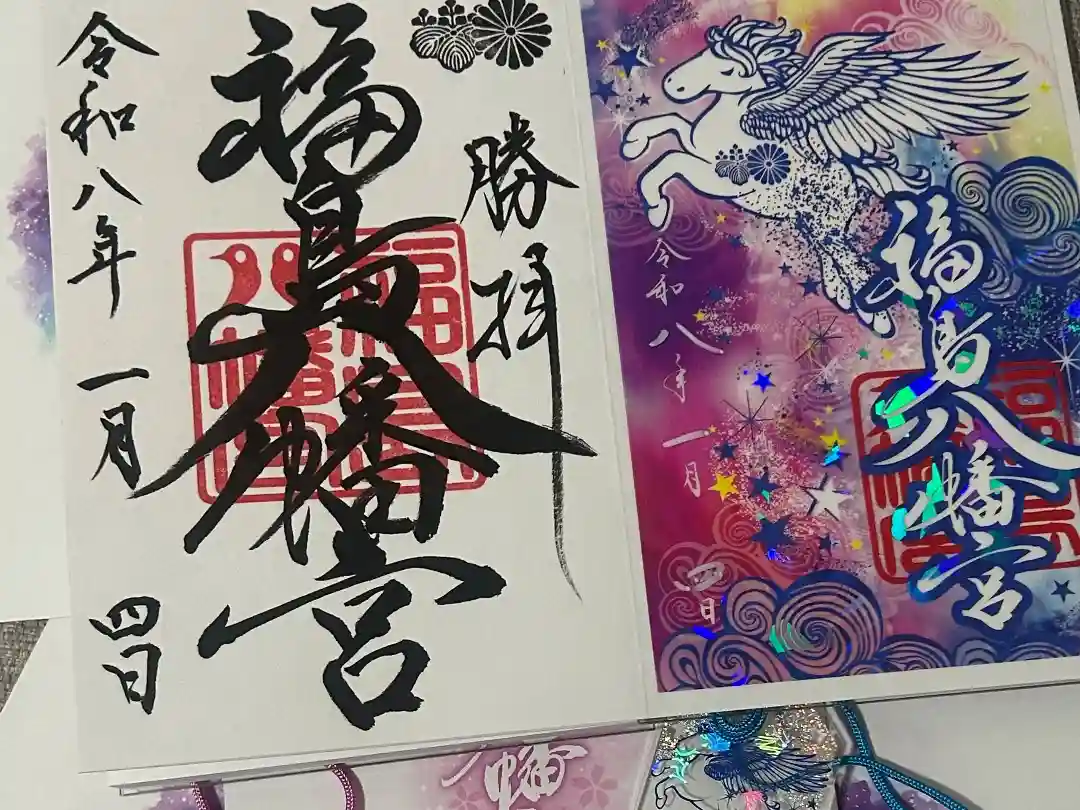 勝拝
福島八幡宮
令和八年 一月 四日
福島八幡宮
令和八年 一月 四日
幡